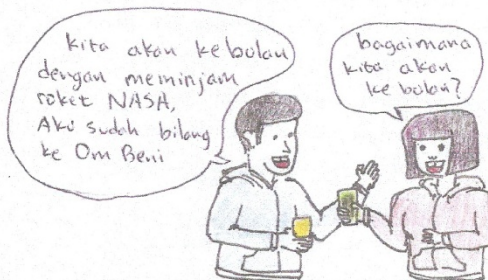 kita akan ke bulan
dengan meminjam
roket NASA,
Aku sudah bilang
ke Om Beni
bagaimana
kita akan
ke bulan?